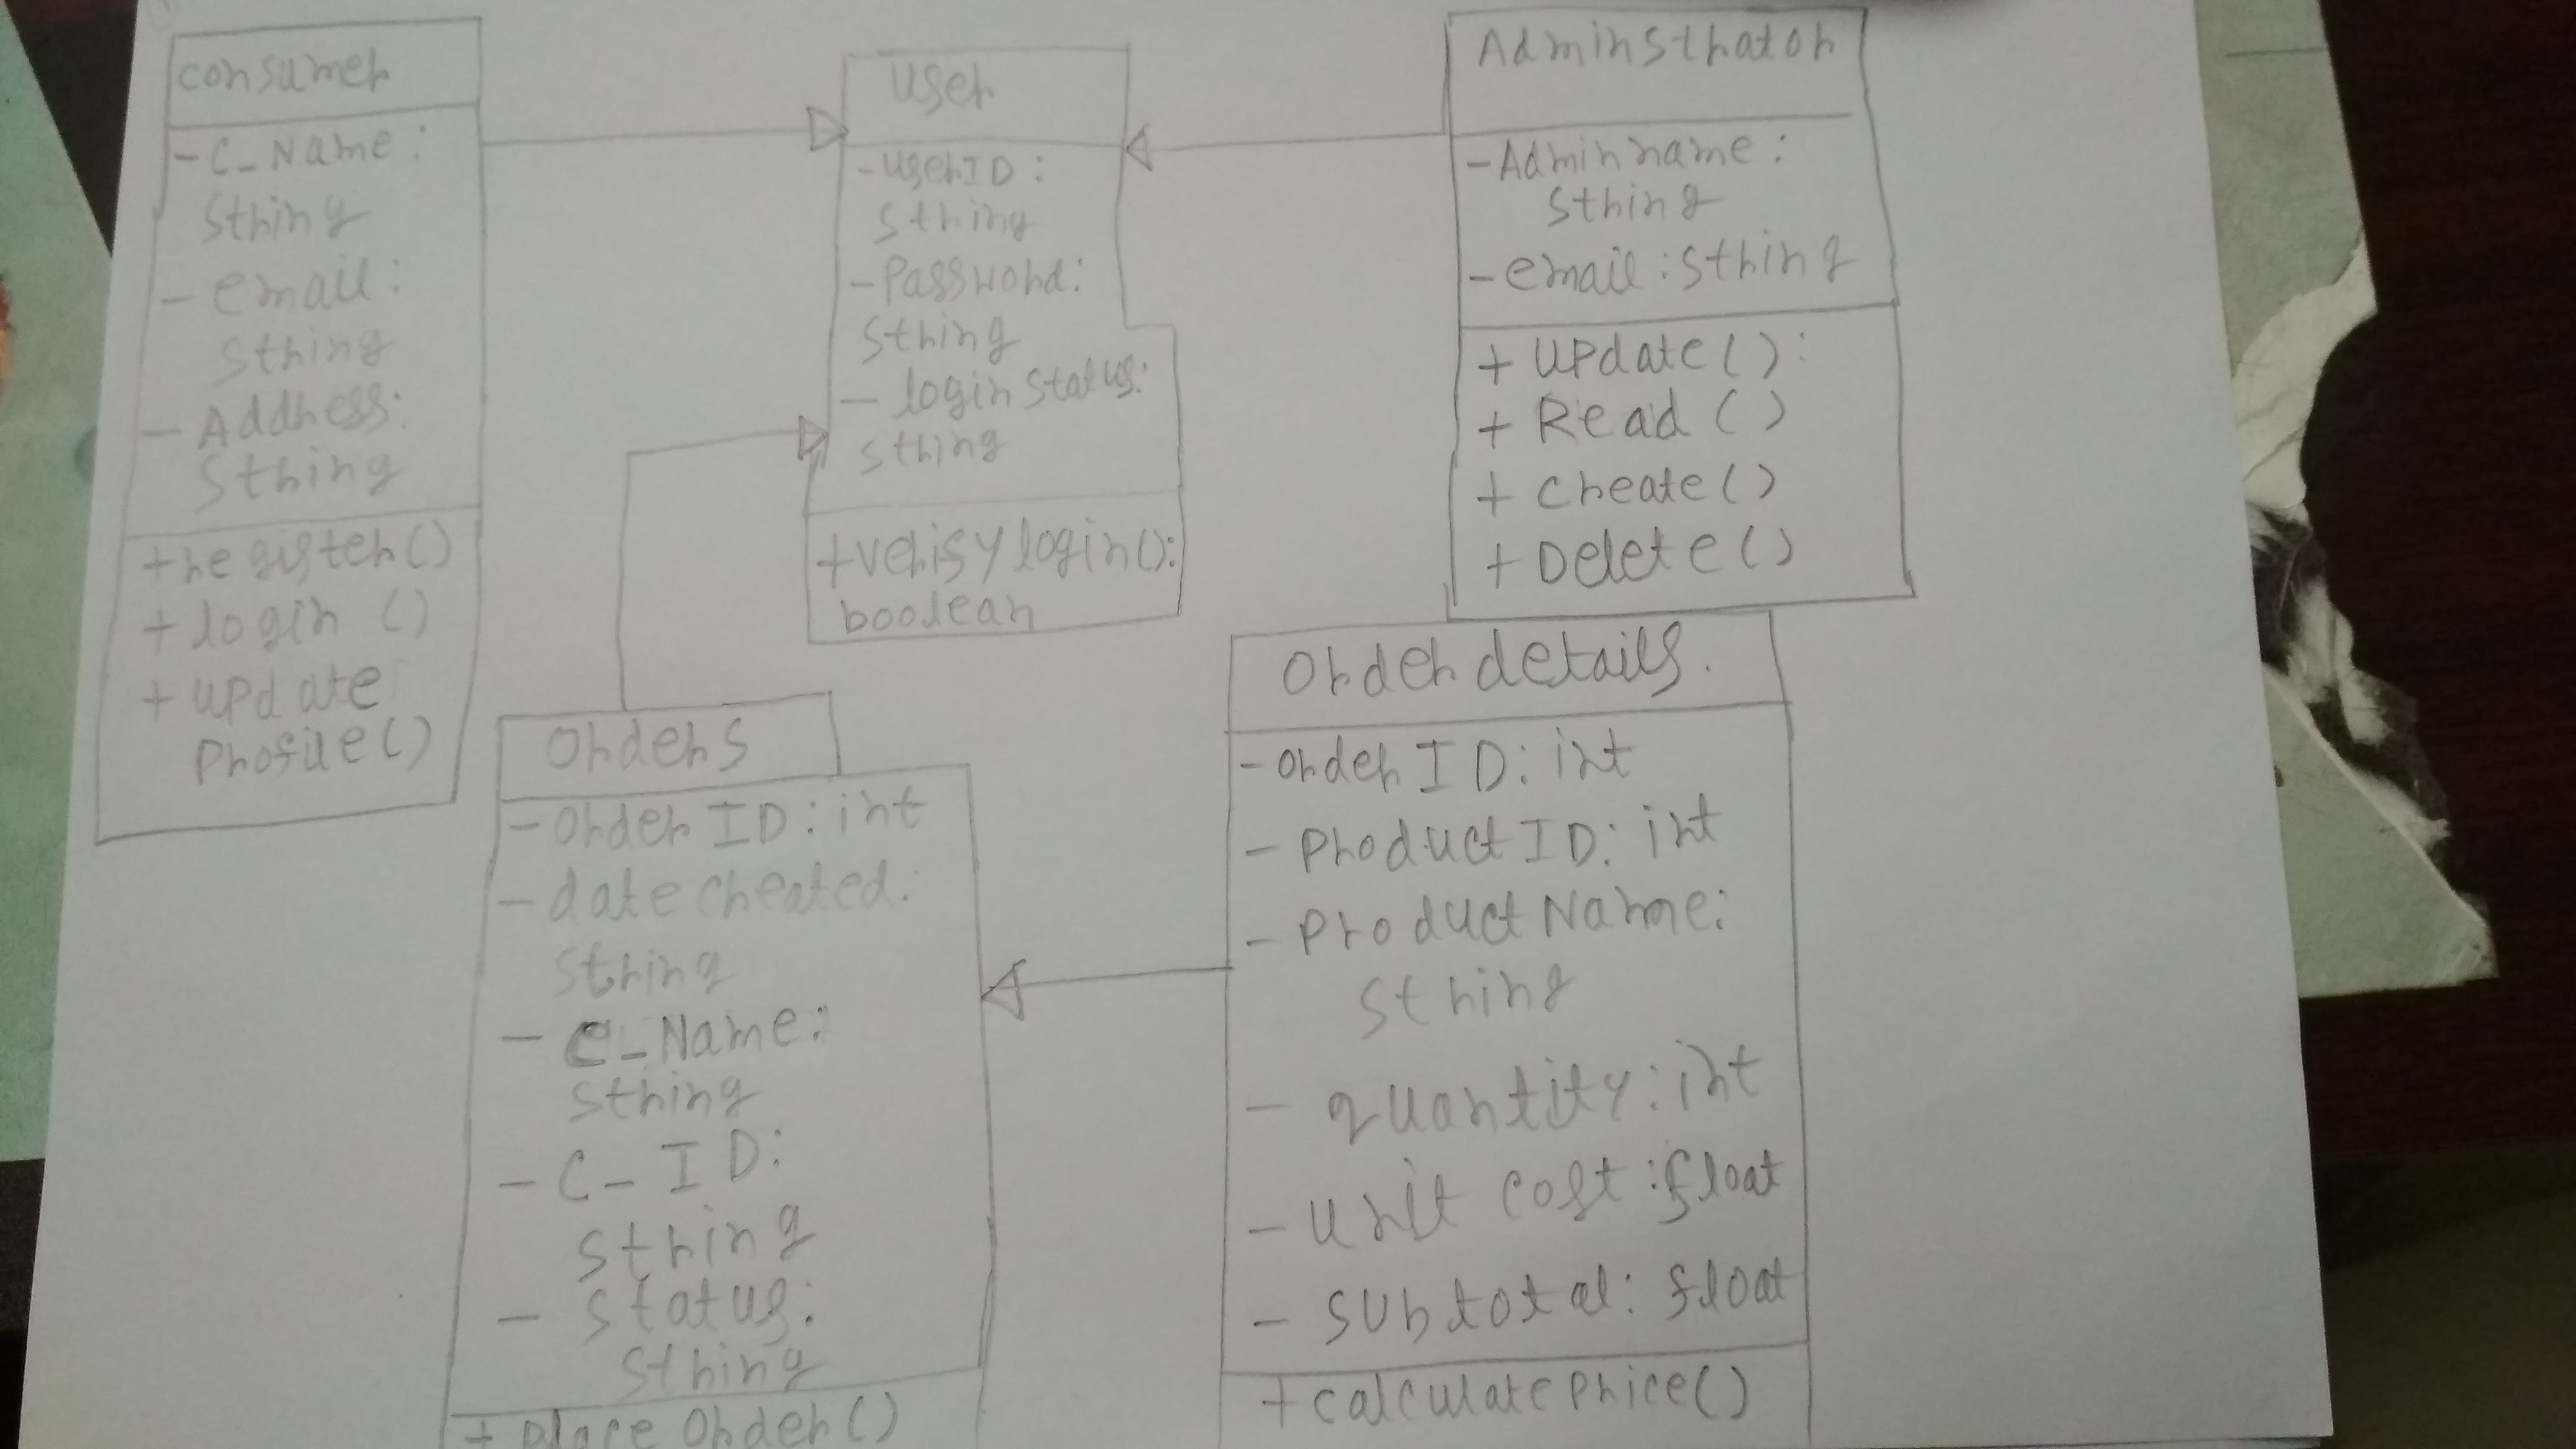 consumer
- C_Name:
string
- email:
string
- Address:
string
+ register()
+ login ()
+ update
Profile()
User
- userID:
string
- Password:
string
- login status:
string
+ verify login():
boolean
Adminstrator
- Admin name:
string
- email: string
+ update():
+ Read ()
+ create()
+ Delete()
Orders
- Order ID: int
- date created:
string
- C_Name:
string
- C_ID:
string
- status:
string
+ place Order()
Order details.
- Order ID: int
- Product ID: int
- Product Name:
string
- quantity: int
- unit cost: float
- subtotal: float
+ calculate Price()